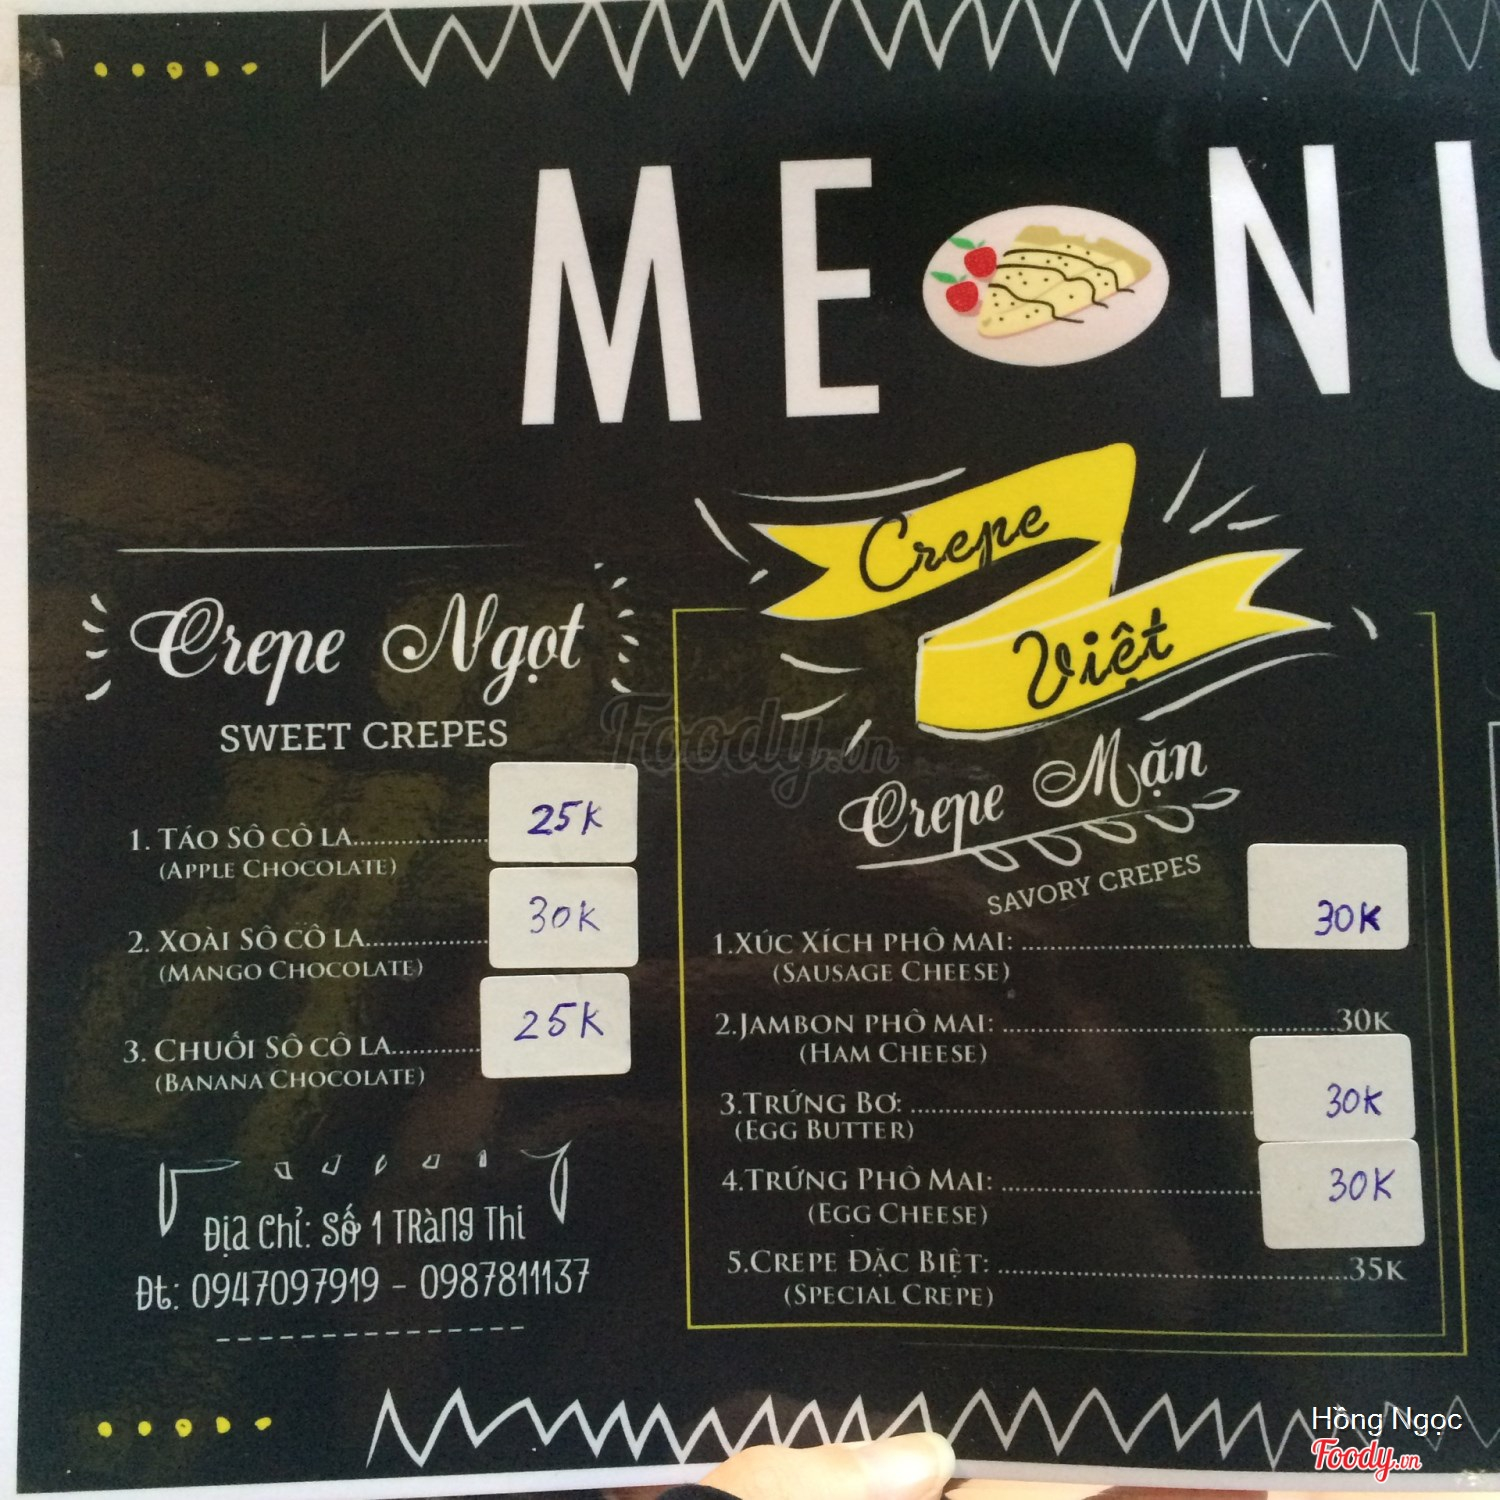 MENU
Crepe
Việt
Crepe Ngọt
SWEET CREPES
1. TÁO SÔ CÔ LA.................... 25K
(APPLE CHOCOLATE)
2. XOÀI SÔ CÔ LA.................. 30K
(MANGO CHOCOLATE)
3. CHUỐI SÔ CÔ LA.............. 25K
(BANANA CHOCOLATE)
Địa chỉ: Số 1 Tràng Thi
Đt: 0947097919 - 0987811137
Crepe Mặn
SAVORY CREPES
1.XÚC XÍCH PHÔ MAI: .................................. 30K
(SAUSAGE CHEESE)
2.JAMBON PHÔ MAI: ..................................................30K
(HAM CHEESE)
3.TRỨNG BƠ: .................................................... 30K
(EGG BUTTER)
4.TRỨNG PHÔ MAI: ....................................... 30K
(EGG CHEESE)
5.CREPE ĐẶC BIỆT: .....................................................35K
(SPECIAL CREPE)
Foody.vn
Hồng Ngọc
Foody.vn